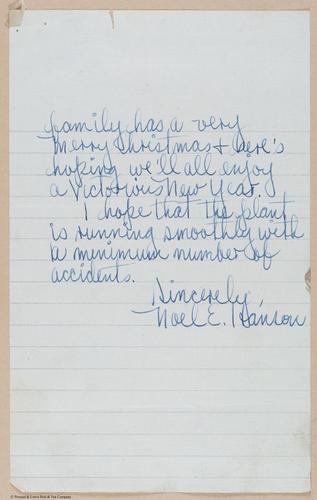 family has a very
Merry Christmas & here's
hoping we'll all enjoy
a Victorious New Year.
I hope that the plant
is running smoothly with
a minimum number of
accidents.
Sincerely,
Noel E. Hanson